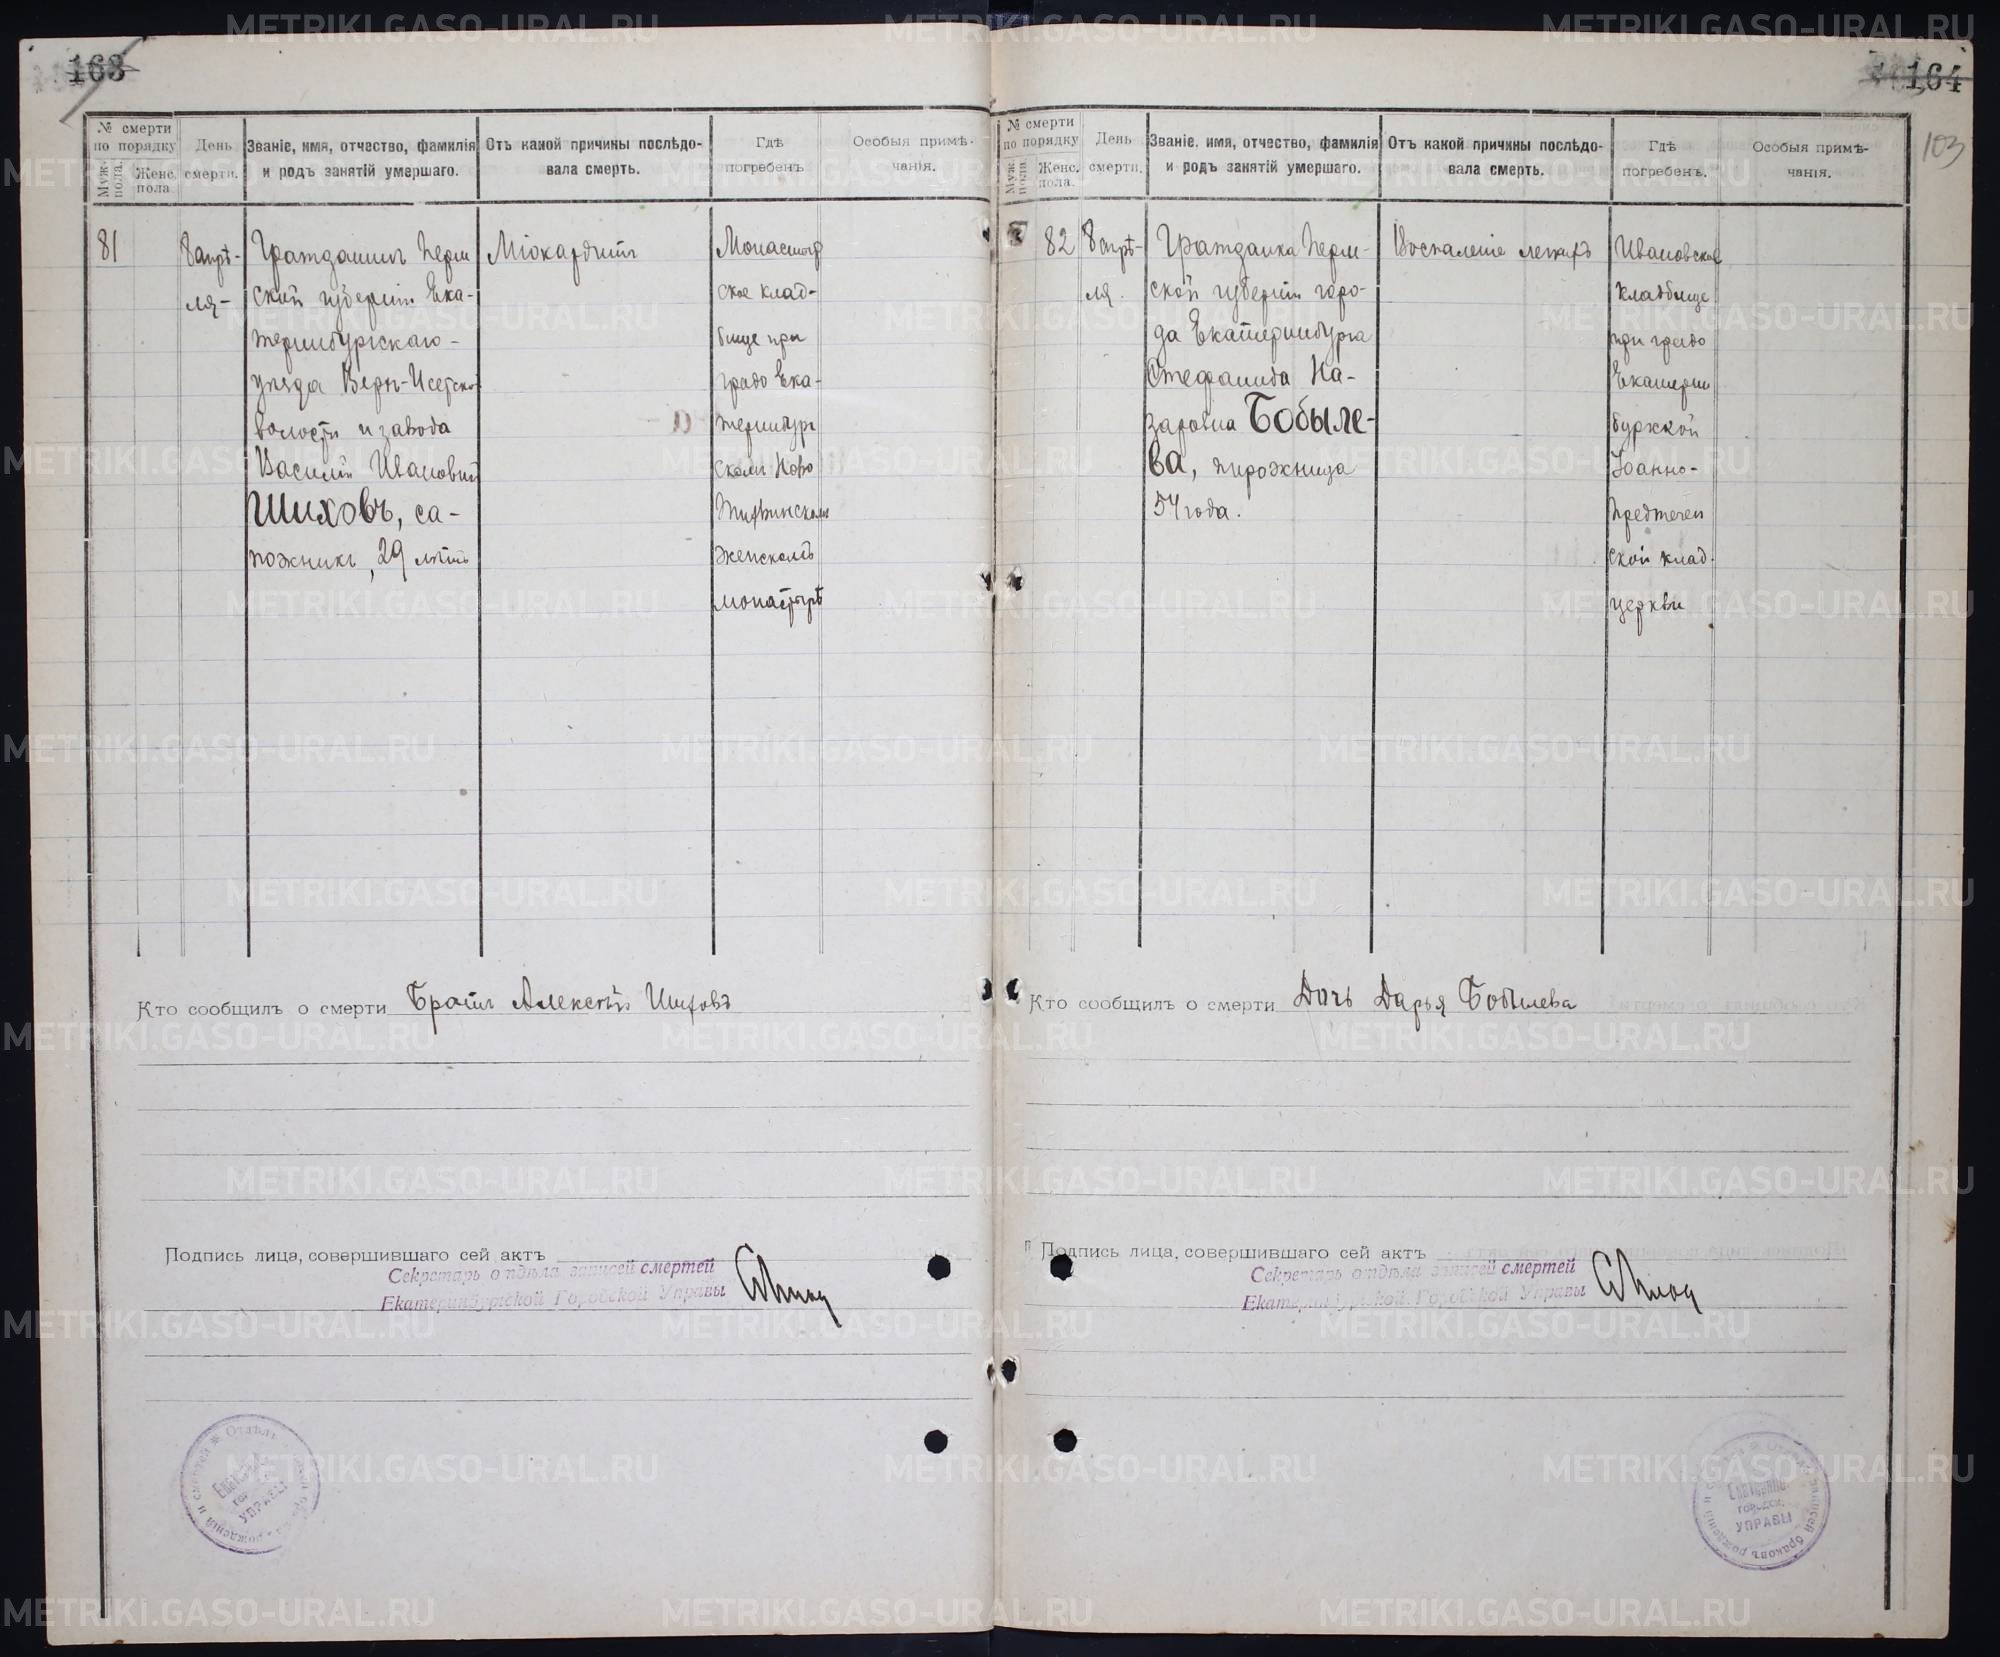 163
№ смерти
по порядку
Муж. пола.
Женс. пола
День
смерти.
Званіе, имя, отчество, фамилія
и родъ занятій умершаго.
Отъ какой причины послѣдо-
вала смерть.
Гдѣ
погребенъ
Особыя примѣ-
чанія.
81
8 апрѣ-
ля-
Гражданинъ Перм
ской губерніи Ека-
теринбургскаго-
уѣзда Верх-Исетской
волости и завода
Василій Ивановичъ
Шиховъ, са-
пожникъ, 29 лѣтъ
Міокардитъ
Монастыр
ское клад-
бище при
градо Ека-
теринбург
скомъ Ново
Тихвинскомъ
женскомъ
монастырѣ
Кто сообщилъ о смерти Братъ Алексѣй Шиховъ
Подпись лица, совершившаго сей актъ
Секретарь отдѣла записей смертей
Екатеринбургской Городской Управы
164
103
№ смерти
по порядку
Муж. пола
Женс. пола.
День
смерти.
Званіе, имя, отчество, фамилія
и родъ занятій умершаго.
Отъ какой причины послѣдо-
вала смерть.
Гдѣ
погребенъ.
Особыя примѣ-
чанія.
82
8 апрѣ-
ля.
Гражданка Перм-
ской губерніи горо-
да Екатеринбурга
Стефанида На-
заровна Бобыле-
ва, пирожница
54 года.
Воспаленіе легкихъ
Ивановское
кладбище
при градо
Екатерин
буржской
Іоанно-
Предтечен
ской клад.
церкви
Кто сообщилъ о смерти Дочь Дарья Бобылева
Подпись лица, совершившаго сей актъ
Секретарь отдѣла записей смертей
Екатеринбургской Городской Управы
УПРАВЫ
Екатеринб.
городск.
УПРАВЫ
METRIKI.GASO-URAL.RU